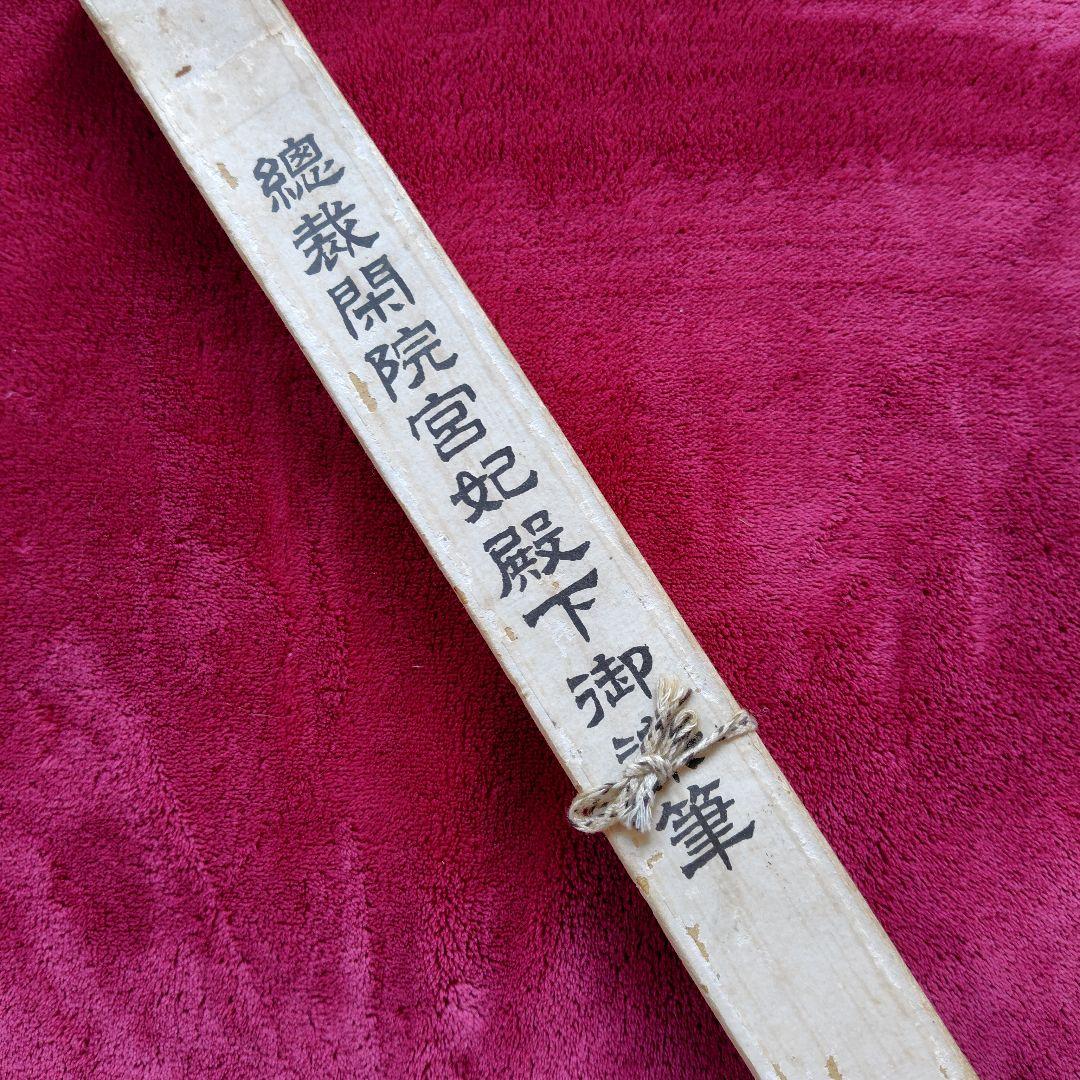 總裁閑院宮妃殿下御染筆